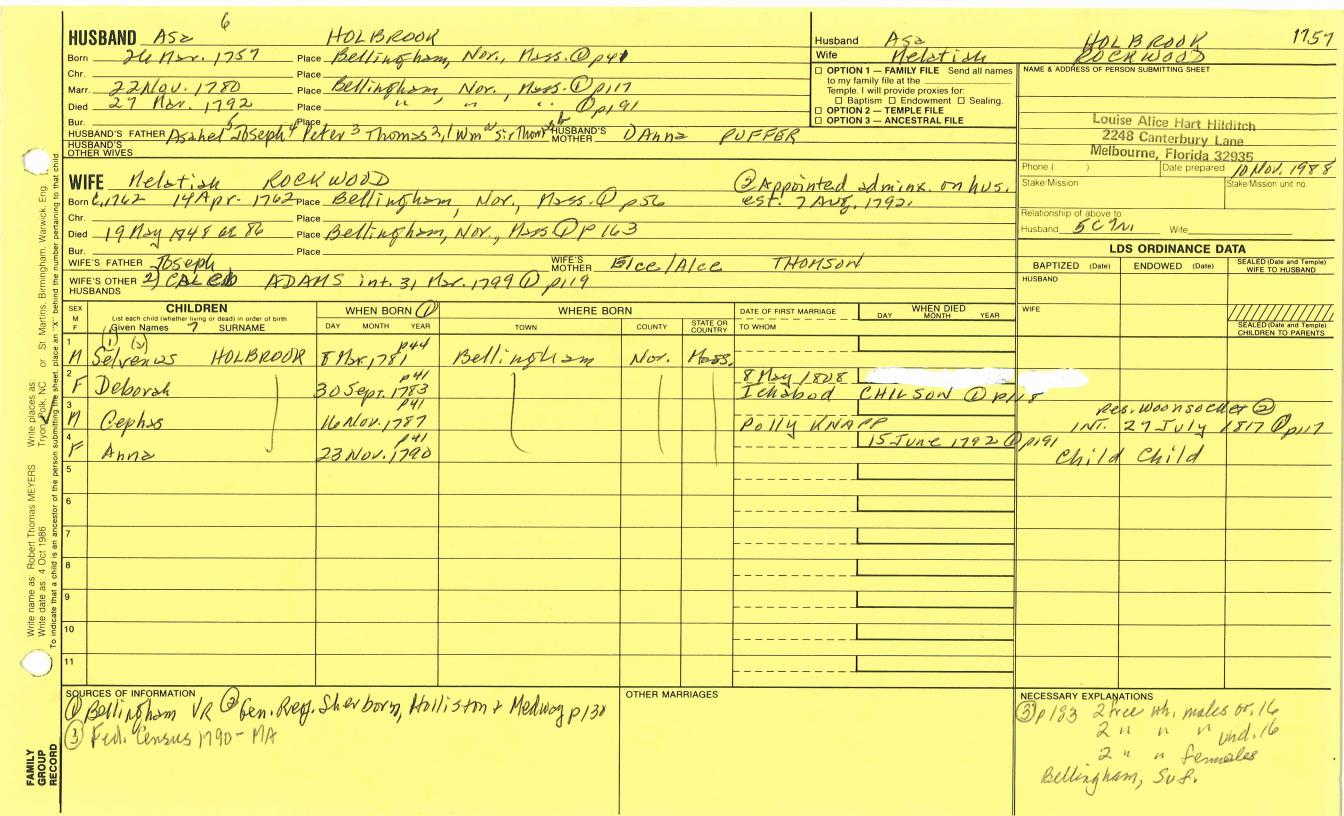 6
HUSBAND Asa HOLBROOK
Born 26 Mar. 1757 Place Bellingham, Nor., Mass. ① p41
Chr. Place
Marr. 22 Nov. 1780 Place Bellingham, Nor., Mass. ① p117
Died 27 Mar. 1792 Place " " " ① p191
Bur. Place
HUSBAND'S FATHER Asahel 5 Joseph 4 Peter 3 Thomas 2,1 Wm HUSBAND'S MOTHER DAnna PUFFER
HUSBAND'S OTHER WIVES
Husband Asa HOLBROOK 1757
Wife Melatiah ROCKWOOD
☐ OPTION 1 — FAMILY FILE Send all names
to my family file at the
Temple. I will provide proxies for:
☐ Baptism ☐ Endowment ☐ Sealing.
☐ OPTION 2 — TEMPLE FILE
☐ OPTION 3 — ANCESTRAL FILE
NAME & ADDRESS OF PERSON SUBMITTING SHEET
Louise Alice Hart Hilditch
2248 Canterbury Lane
Melbourne, Florida 32935
Phone ( ) Date prepared 10 Nov. 1988
Stake/Mission Stake/Mission unit no.
Relationship of above to
Husband 5C7M Wife
WIFE Melatiah ROCKWOOD
② Appointed admins. on hus.
est. 7 Aug. 1792.
Born c.1762 14 Apr. 1762 Place Bellingham, Nor., Mass. ① p56
Chr. Place
Died 19 May 1848 ae 86 Place Bellingham, Nor., Mass ① P163
Bur. Place
WIFE'S FATHER Joseph WIFE'S MOTHER Elce/Alce THOMSON
WIFE'S OTHER HUSBANDS 2) CALEB ADAMS int. 31 Mar. 1799 ① p119
LDS ORDINANCE DATA
BAPTIZED (Date) ENDOWED (Date) SEALED (Date and Temple) WIFE TO HUSBAND
HUSBAND
WIFE
SEALED (Date and Temple) CHILDREN TO PARENTS
SEX M F
CHILDREN
List each child (whether living or dead) in order of birth
Given Names SURNAME
WHEN BORN ①
DAY MONTH YEAR
WHERE BORN
TOWN COUNTY STATE OR COUNTRY
DATE OF FIRST MARRIAGE
TO WHOM
WHEN DIED
DAY MONTH YEAR
(1) (2) p44
1 M Selvenas HOLBROOK 8 Mar. 1781 Bellingham Nor. Mass.
p41 8 May 1808
2 F Deborah 30 Sept. 1783 Ichabod CHILSON ① p118
p41 Res. Woonsocket ②
3 M Cephas 16 Nov. 1787 Polly KNAPP INT. 27 July 1817 ① p117
p41 15 June 1792 ① p191
4 F Anna 23 Nov. 1790 Child Child
5
6
7
8
9
10
11
SOURCES OF INFORMATION
① Bellingham VR ② Gen. Reg. Sherborn, Holliston & Medway p130
③ Fed. Census 1790 - MA
OTHER MARRIAGES
NECESSARY EXPLANATIONS
③ p183 2 free wh. males ov. 16
2 " " " und. 16
2 " " females
Bellingham, Suf.
Write name as Robert Thomas MEYERS Write places as Tryon, Polk, NC or St Martins, Birmingham, Warwick, Eng.
Write date as 4 Oct 1986
To indicate that a child is an ancestor of the person submitting the sheet, place an "X" behind the number pertaining to that child
FAMILY
GROUP
RECORD